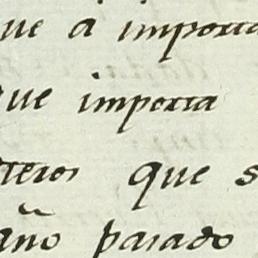 ue a importa
que importa
teros que s
año pasado